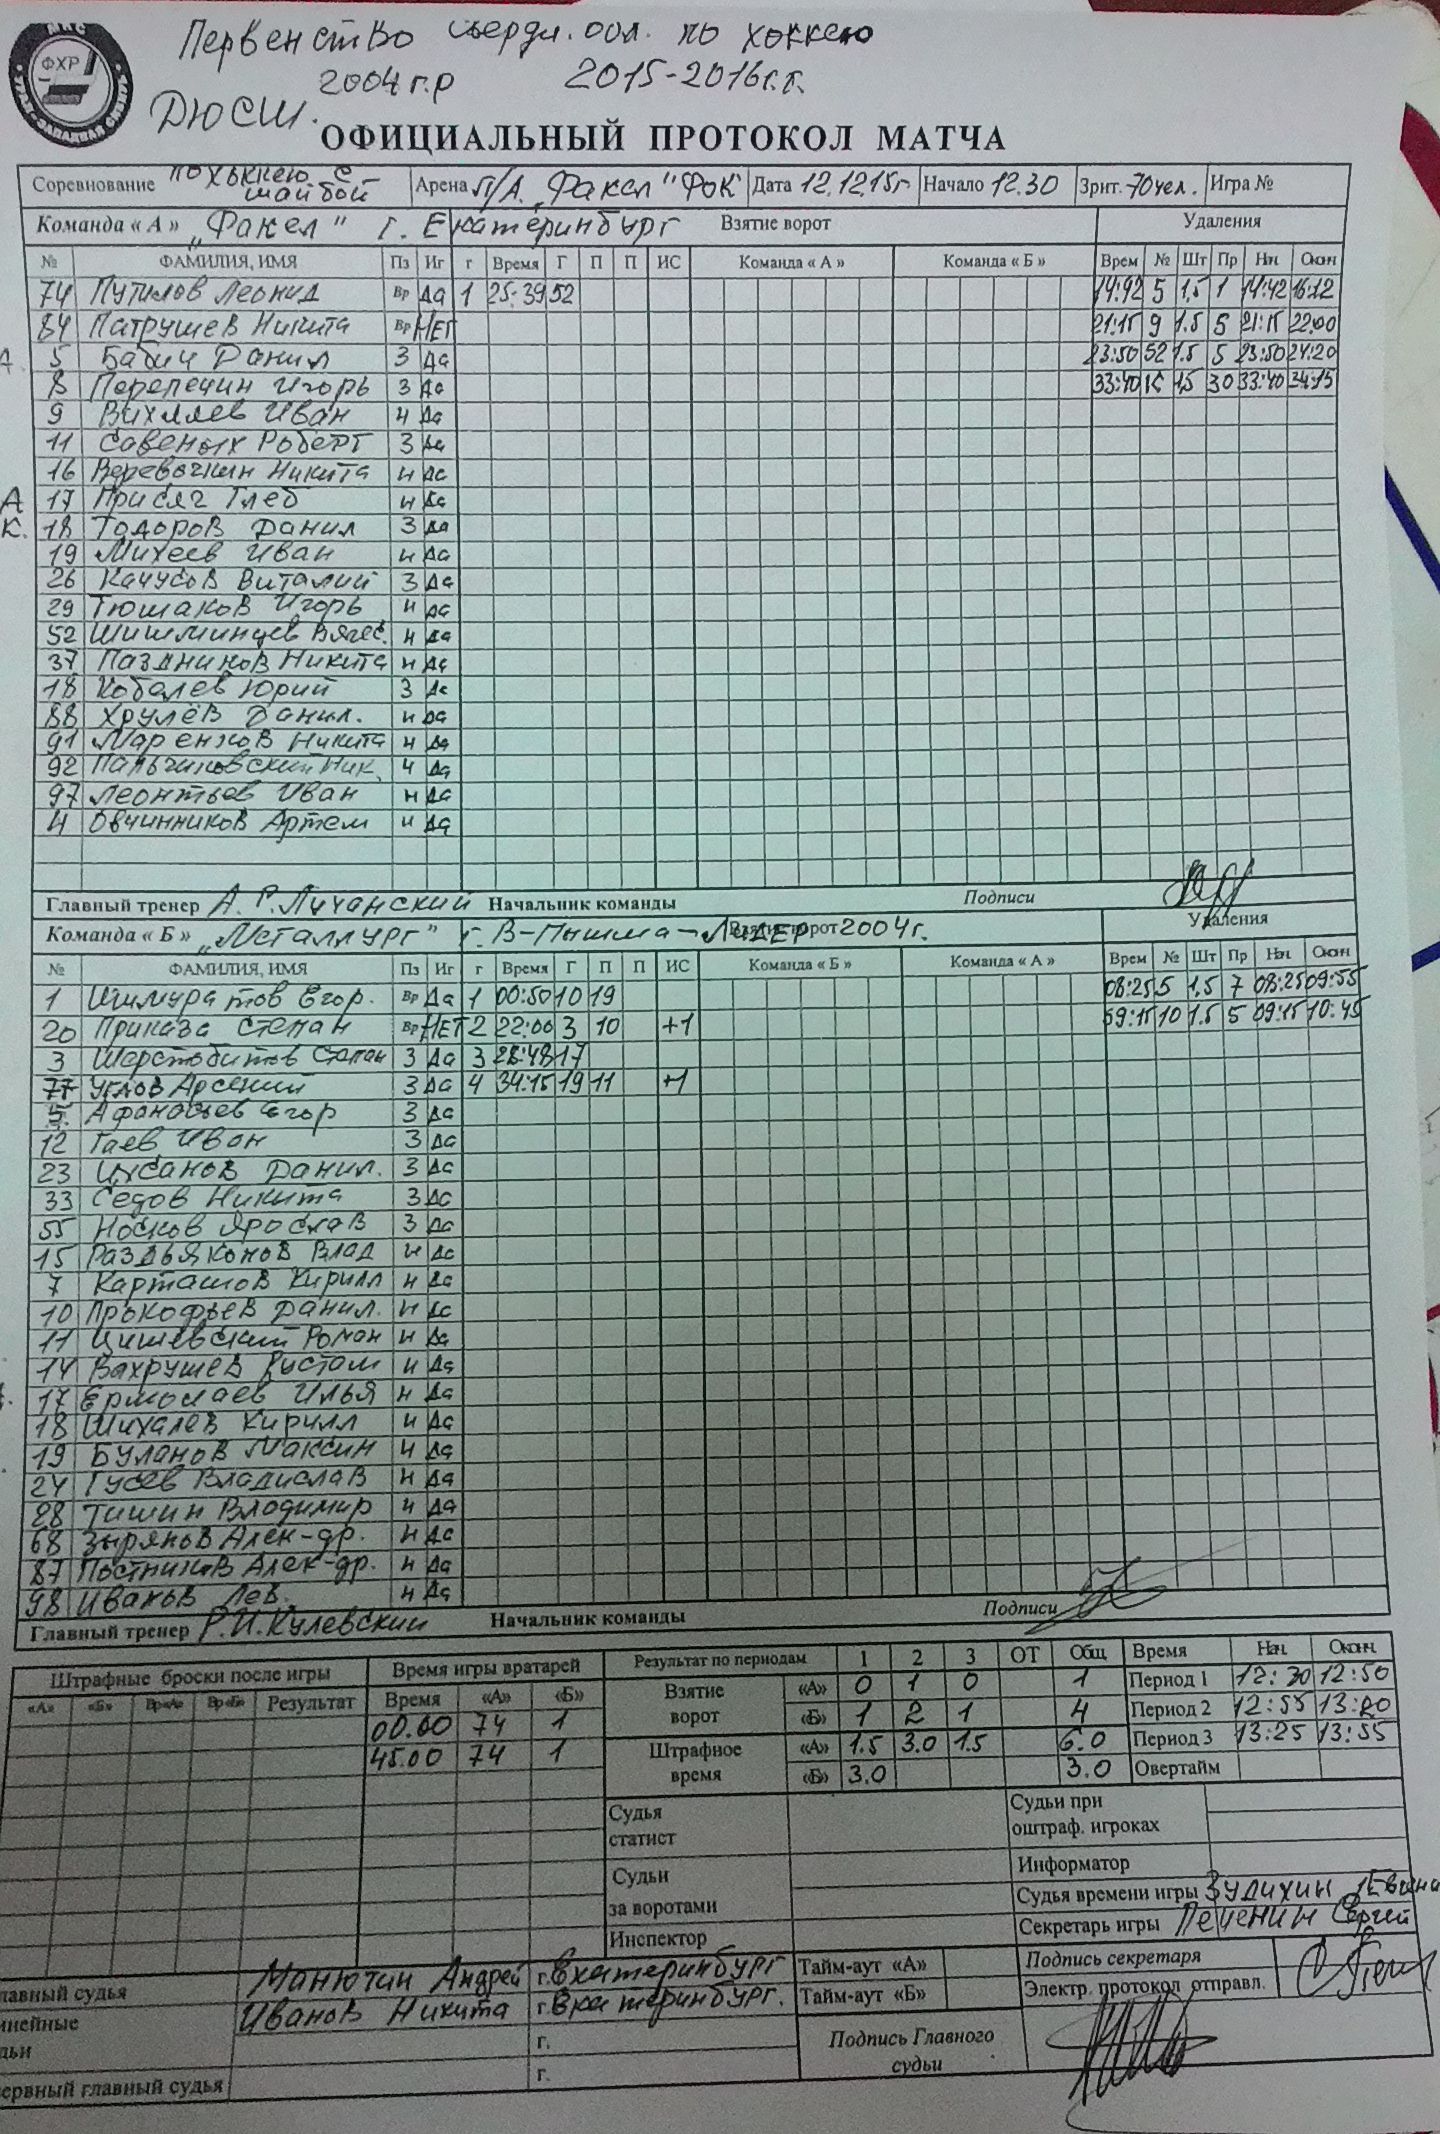 Первенство Свердл. обл. по хоккею
2004 г.р 2015-2016 г.г.
ДЮСШ.
ФХР
ОФИЦИАЛЬНЫЙ ПРОТОКОЛ МАТЧА
Соревнование по хоккею с шайбой Арена Л/А. „Факел" ФОК Дата 12.12.15г Начало 12.30 Зрит. 70 чел. Игра №
Команда « А » „Факел" г. Екатеринбург Взятие ворот Удаления
№ ФАМИЛИЯ, ИМЯ Пз Иг г Время Г П П ИС Команда « А » Команда « Б » Врем № Шт Пр Нач. Оконч
74 Путилов Леонид Вр Да 1 25:39 52 14:42 5 1,5 1 14:42 16:12
84 Патрушев Никита Вр НЕТ 21:15 9 1.5 5 21:15 22:00
А. 5 Бабич Данил З Да 23:50 52 1.5 5 23:50 24:20
8 Перепечин Игорь З Да 33:40 1,5 30 33:40 34:15
9 Вихляев Иван Н Да
11 Савеных Роберт З Да
16 Веревочкин Никита Н Да
А 17 Присяч Глеб Н Да
К. 18 Тодоров Данил З Да
19 Михеев Иван Н Да
26 Качусов Виталий З Да
29 Тюшаков Игорь Н Да
52 Шишминцев Вячес. Н Да
37 Паздников Никита Н Да
18 Кобелев Юрий З Да
88 Хрулёв Данил. Н Да
91 Маренков Никита Н Да
92 Пальчиковский Ник. Н Да
97 Леонтьев Иван Н Да
4 Овчинников Артем Н Да
Главный тренер А.Р.Лучанский Начальник команды Подписи
Команда « Б » „Металлург" г. В-Пышма-Лидер 2004г. Взятие ворот Удаления
№ ФАМИЛИЯ, ИМЯ Пз Иг г Время Г П П ИС Команда « Б » Команда « А » Врем № Шт Пр Нач. Оконч
1 Ишмуратов Егор. Вр Да 1 00:50 10 19 08:25 5 1,5 7 08:25 09:55
20 Приказа Степан Вр НЕТ 2 22:00 3 10 +1 09:15 10 1.5 5 09:15 10:45
3 Шерстобитов Степан З Да 3 28:48 17
77 Углов Арсений З Да 4 34:15 19 11 +1
5. Афанасьев Егор З Да
12 Гаев Иван З Да
23 Ихсанов Данил. З Да
33 Седов Никита З Да
55 Носков Ярослав З Да
15 Раздьяконов Влад Н Да
7 Карташов Кирилл Н Да
10 Прокофьев Данил. Н Да
11 Цишевский Роман Н Да
14 Вахрушев Рустам Н Да
17 Ермолаев Илья Н Да
18 Шихалев Кирилл Н Да
19 Буланов Максим Н Да
24 Гусев Владислав Н Да
28 Тишин Владимир Н Да
68 Зырянов Алек-др. Н Да
87 Постников Алек-др. Н Да
98 Иванов Лев. Н Да
Главный тренер Р.И.Кулевский Начальник команды Подписи
Штрафные броски после игры Время игры вратарей Результат по периодам 1 2 3 ОТ Общ Время Нач. Оконч.
«А» «Б» Вр«А» Вр«Б» Результат Время «А» «Б» Взятие ворот «А» 0 1 0 1 Период 1 12:30 12:50
00.00 74 1 «Б» 1 2 1 4 Период 2 12:55 13:20
45.00 74 1 Штрафное время «А» 1.5 3.0 1.5 6.0 Период 3 13:25 13:55
«Б» 3.0 3.0 Овертайм
Судья статист Судьи при оштраф. игроках
Судьи за воротами Информатор
Судья времени игры Зудихин Евгени
Секретарь игры Печенин Сергей
Инспектор
лавный судья Манютин Андрей г. Екатеринбург Тайм-аут «А» Подпись секретаря
инейные дьи Иванов Никита г. Екатеринбург. Тайм-аут «Б» Электр. протокол отправл.
г. Подпись Главного судьи
ервный главный судья г.